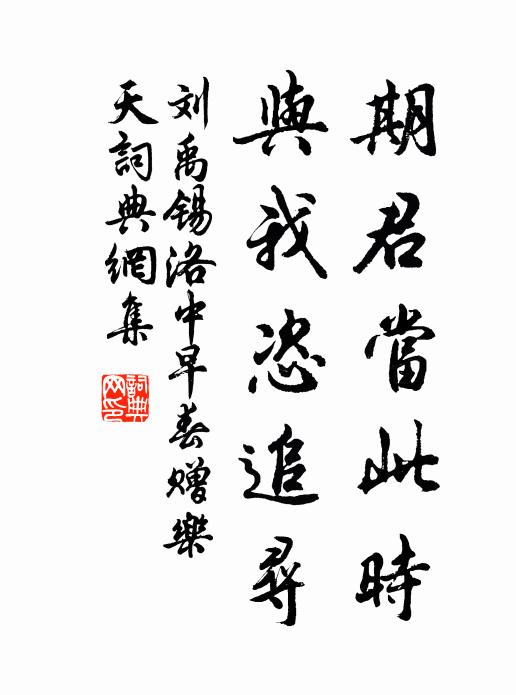 期君當此時
與我恣追尋
刘禹锡洛中早春赠樂
天詞典網集
詞典
网印